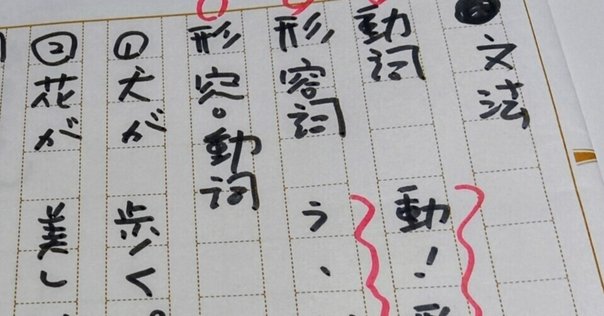 文法
動詞 動！形
形容詞 う、
形容動詞
①犬が 歩く
②花が 美し